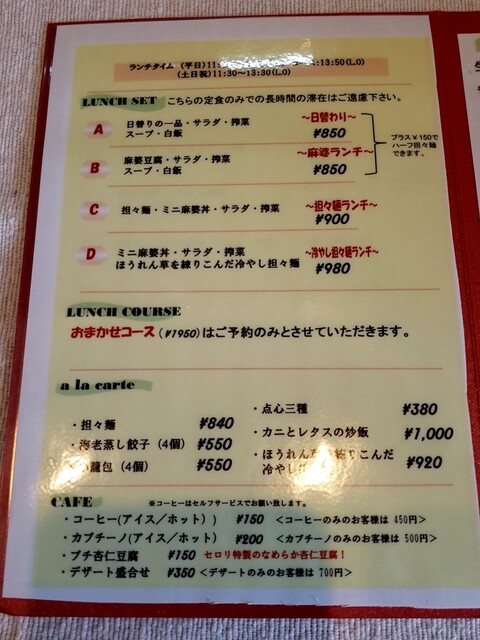 ランチタイム (平日)11: :13:50(L.O)
(土日祝)11:30~13:30(L.O)
LUNCH SET こちらの定食のみでの長時間の滞在はご遠慮下さい。
A 日替りの一品・サラダ・搾菜 ~日替わり~
スープ・白飯 ¥850
プラス¥150で
ハーフ担々麺
できます。
B 麻婆豆腐・サラダ・搾菜 ~麻婆ランチ~
スープ・白飯 ¥850
C 担々麺・ミニ麻婆丼・サラダ・搾菜 ~担々麺ランチ~
¥900
D ミニ麻婆丼・サラダ・搾菜 ~冷やし担々麺ランチ~
ほうれん草を練りこんだ冷やし担々麺 ¥980
LUNCH COURSE
おまかせコース(¥1950)はご予約のみとさせていただきます。
a la carte
・担々麺 ¥840
・海老蒸し餃子(4個) ¥550
籠包(4個) ¥550
・点心三種 ¥380
・カニとレタスの炒飯 ¥1,000
・ほうれん 練りこんだ
冷やし ¥920
CAFE ※コーヒーはセルフサービスでお願い致します。
・コーヒー(アイス/ホット)) ¥150 <コーヒーのみのお客様は 450円>
・カプチーノ(アイス/ホット) ¥200 <カプチーノのみのお客様は 500円>
・プチ杏仁豆腐 ¥150 セロリ特製のなめらか杏仁豆腐!
・デザート盛合せ ¥350 <デザートのみのお客様は 700円>